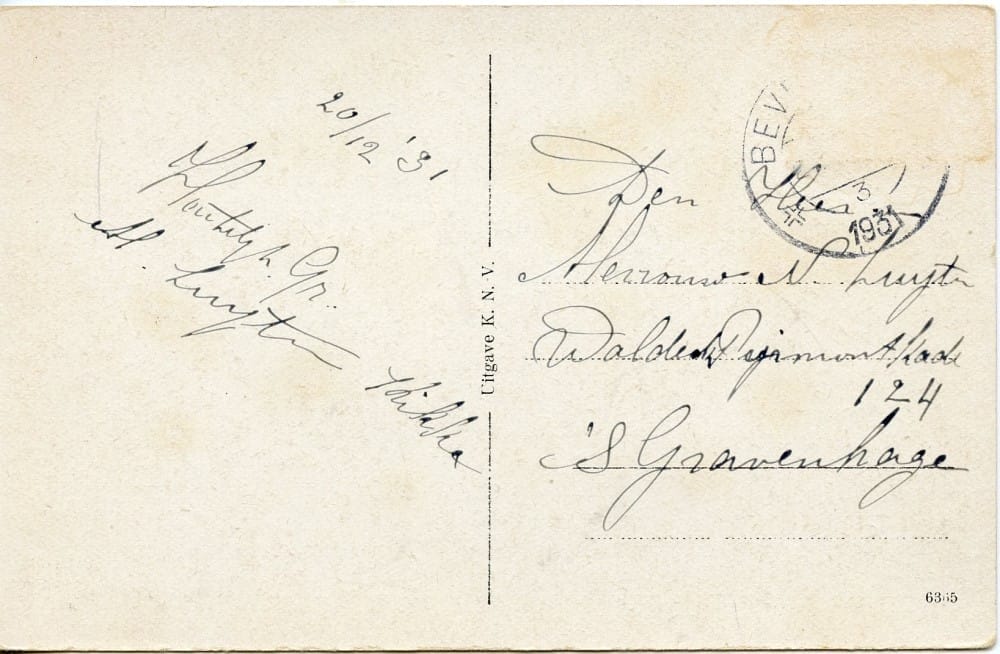 20/12 '31
Hartelijk Gr.
Luyten
Rikka
Uitgave K. N. V.
BEV
3
1931
Den Heer
Mevrouw N. Luyten
Waldeck Pyrmont Kade
124
'S Gravenhage
6365